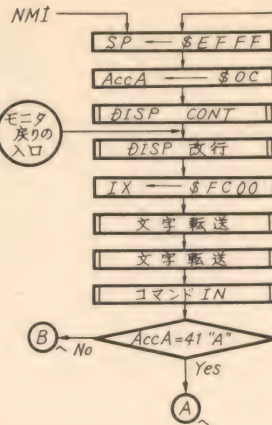 NMI
SP ← $EFFF
AccA ← $0C
DISP CONT
モニタ
戻りの
入口
DISP 改行
IX ← $FC00
文字転送
文字転送
コマンドIN
AccA=41 "A"
B
No
Yes
A